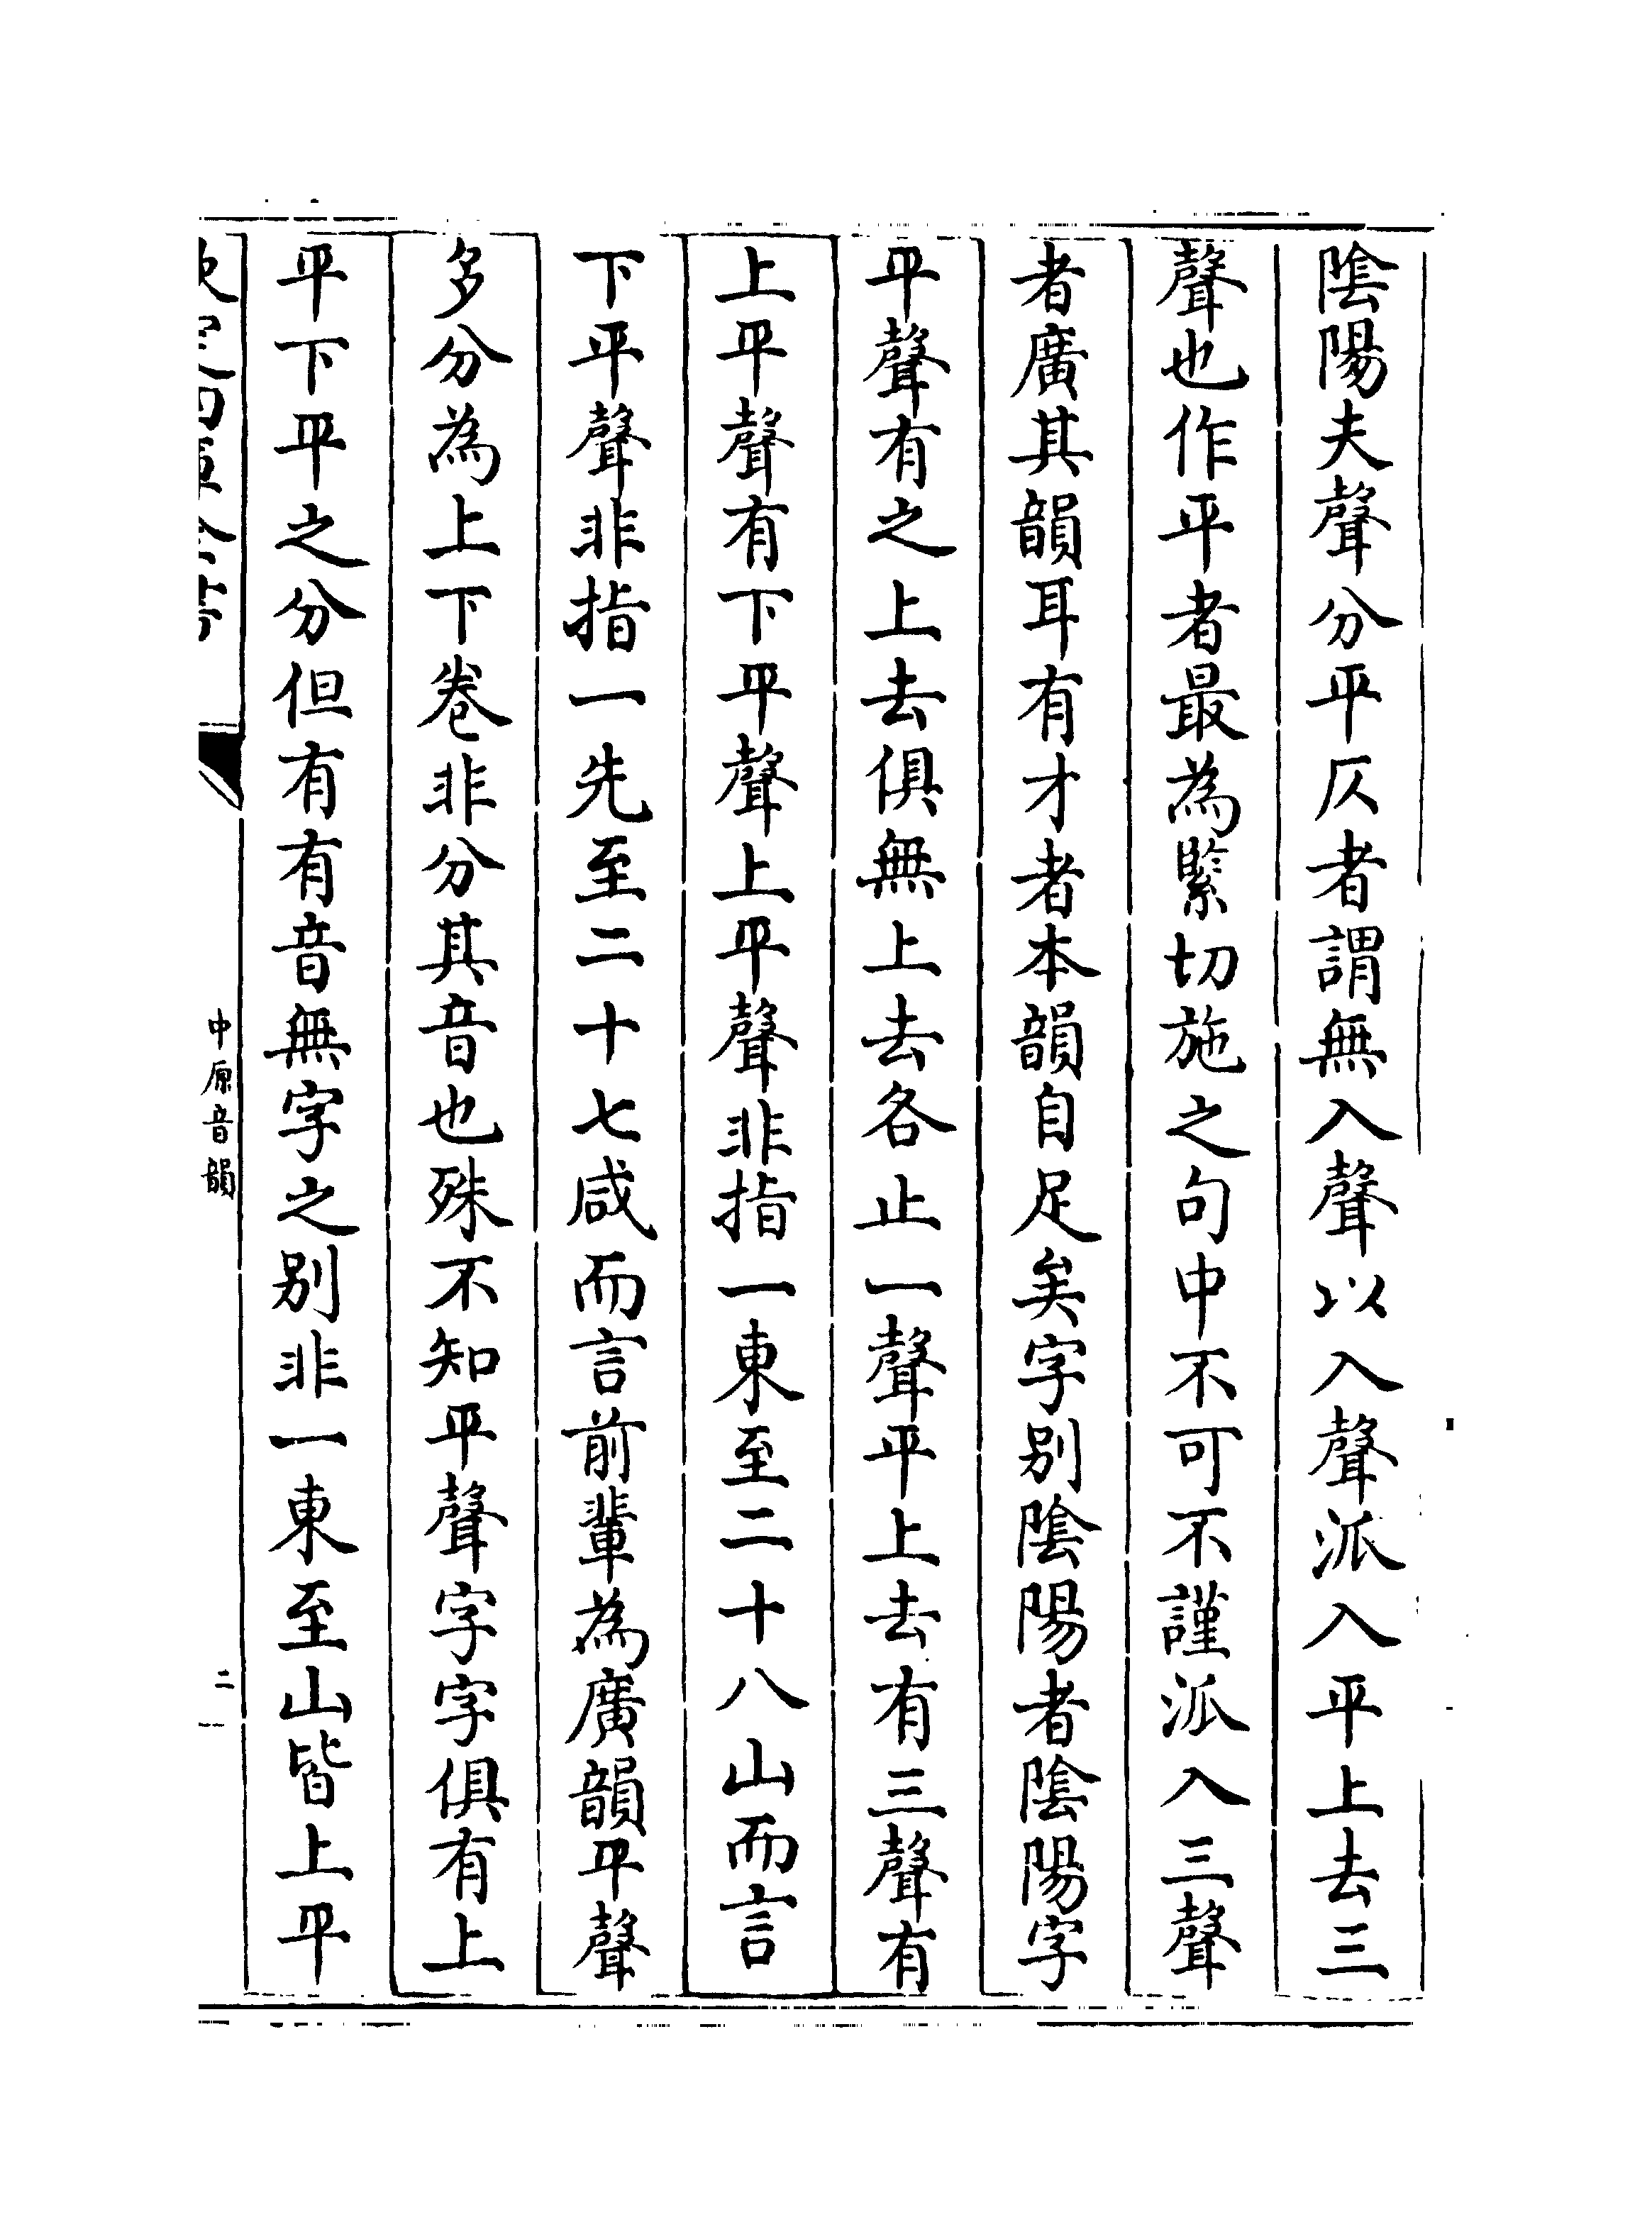 陰陽夫聲分平仄者謂無入聲以入聲派入平上去三
聲也作平者最為緊切施之句中不可不謹派入三聲
者廣其韻耳有才者本韻自足矣字别陰陽者陰陽字
平聲有之上去俱無上去各止一聲平上去有三聲有
上平聲有下平聲上平聲非指一東至二十八山而言
下平聲非指一先至二十七咸而言前輩為廣韻平聲
多分為上下卷非分其音也殊不知平聲字字俱有上
平下平之分但有有音無字之别非一東至山皆上平
欽定四庫全書
中原音韻
二